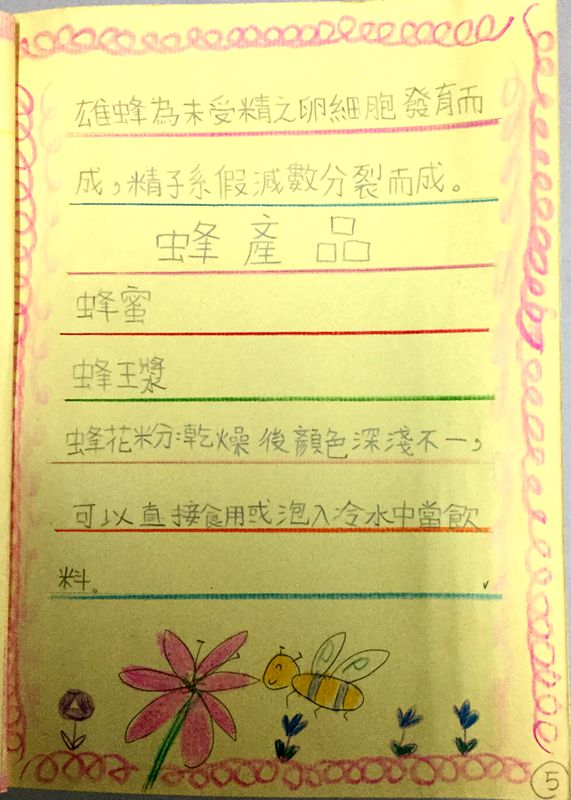 雄蜂為未受精之卵細胞發育而
成，精子系假減數分裂而成。
蜂產品
蜂蜜
蜂王漿
蜂花粉:乾燥後顏色深淺不一，
可以直接食用或泡入冷水中當飲
料。
5